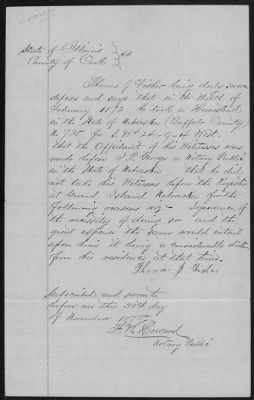 State of Illinois } ss
County of Cook }
Thomas J Fisher being duly sworn
deposes and says that in the Month of
February 1873 he took a Homestead
in the State of Nebraska (Buffalo County
N 735 for S. W 4 24-9-14 West.
that the Affidavit of his Witnesses was
made before a Notary Public
in the State of Nebraska that he did
not take his Witnesses before the Register
at Grand Island Nebraska for the
following reasons viz- Ignorance of
the necessity of doing so and the
great expense the same would entail
upon him it being a considerable distance
from his residence at that time.
Thomas J. Fisher
Subscribed and sworn to
before me this day
of November
F. W. Howard
Notary Public